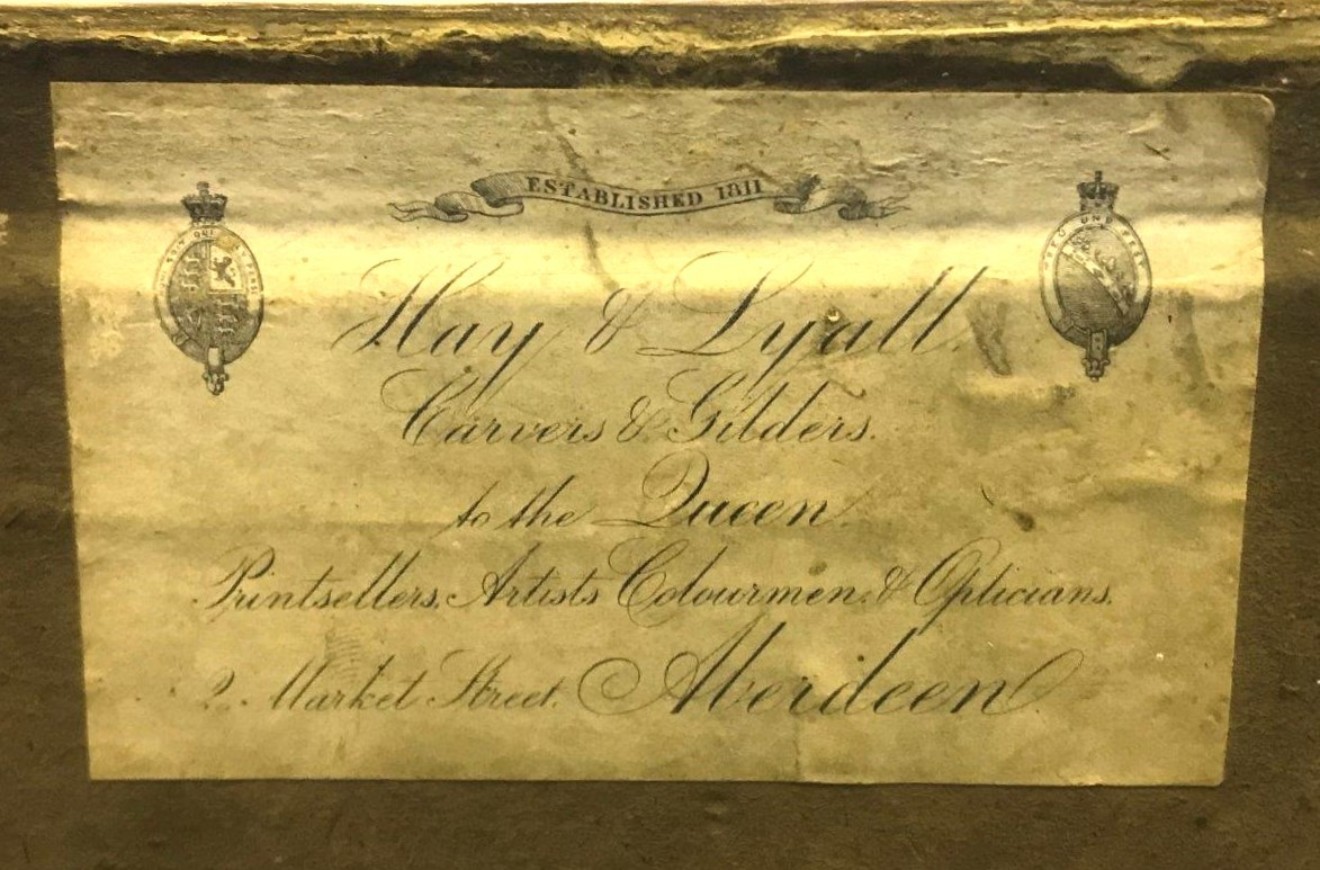 ESTABLISHED 1811
Hay & Lyall.
Carvers & Gilders.
to the Queen.
Printsellers, Artists Colourmen & Opticians.
2. Market Street. Aberdeen.